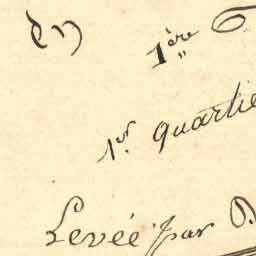 du
1ère
1er quartie
Levée par